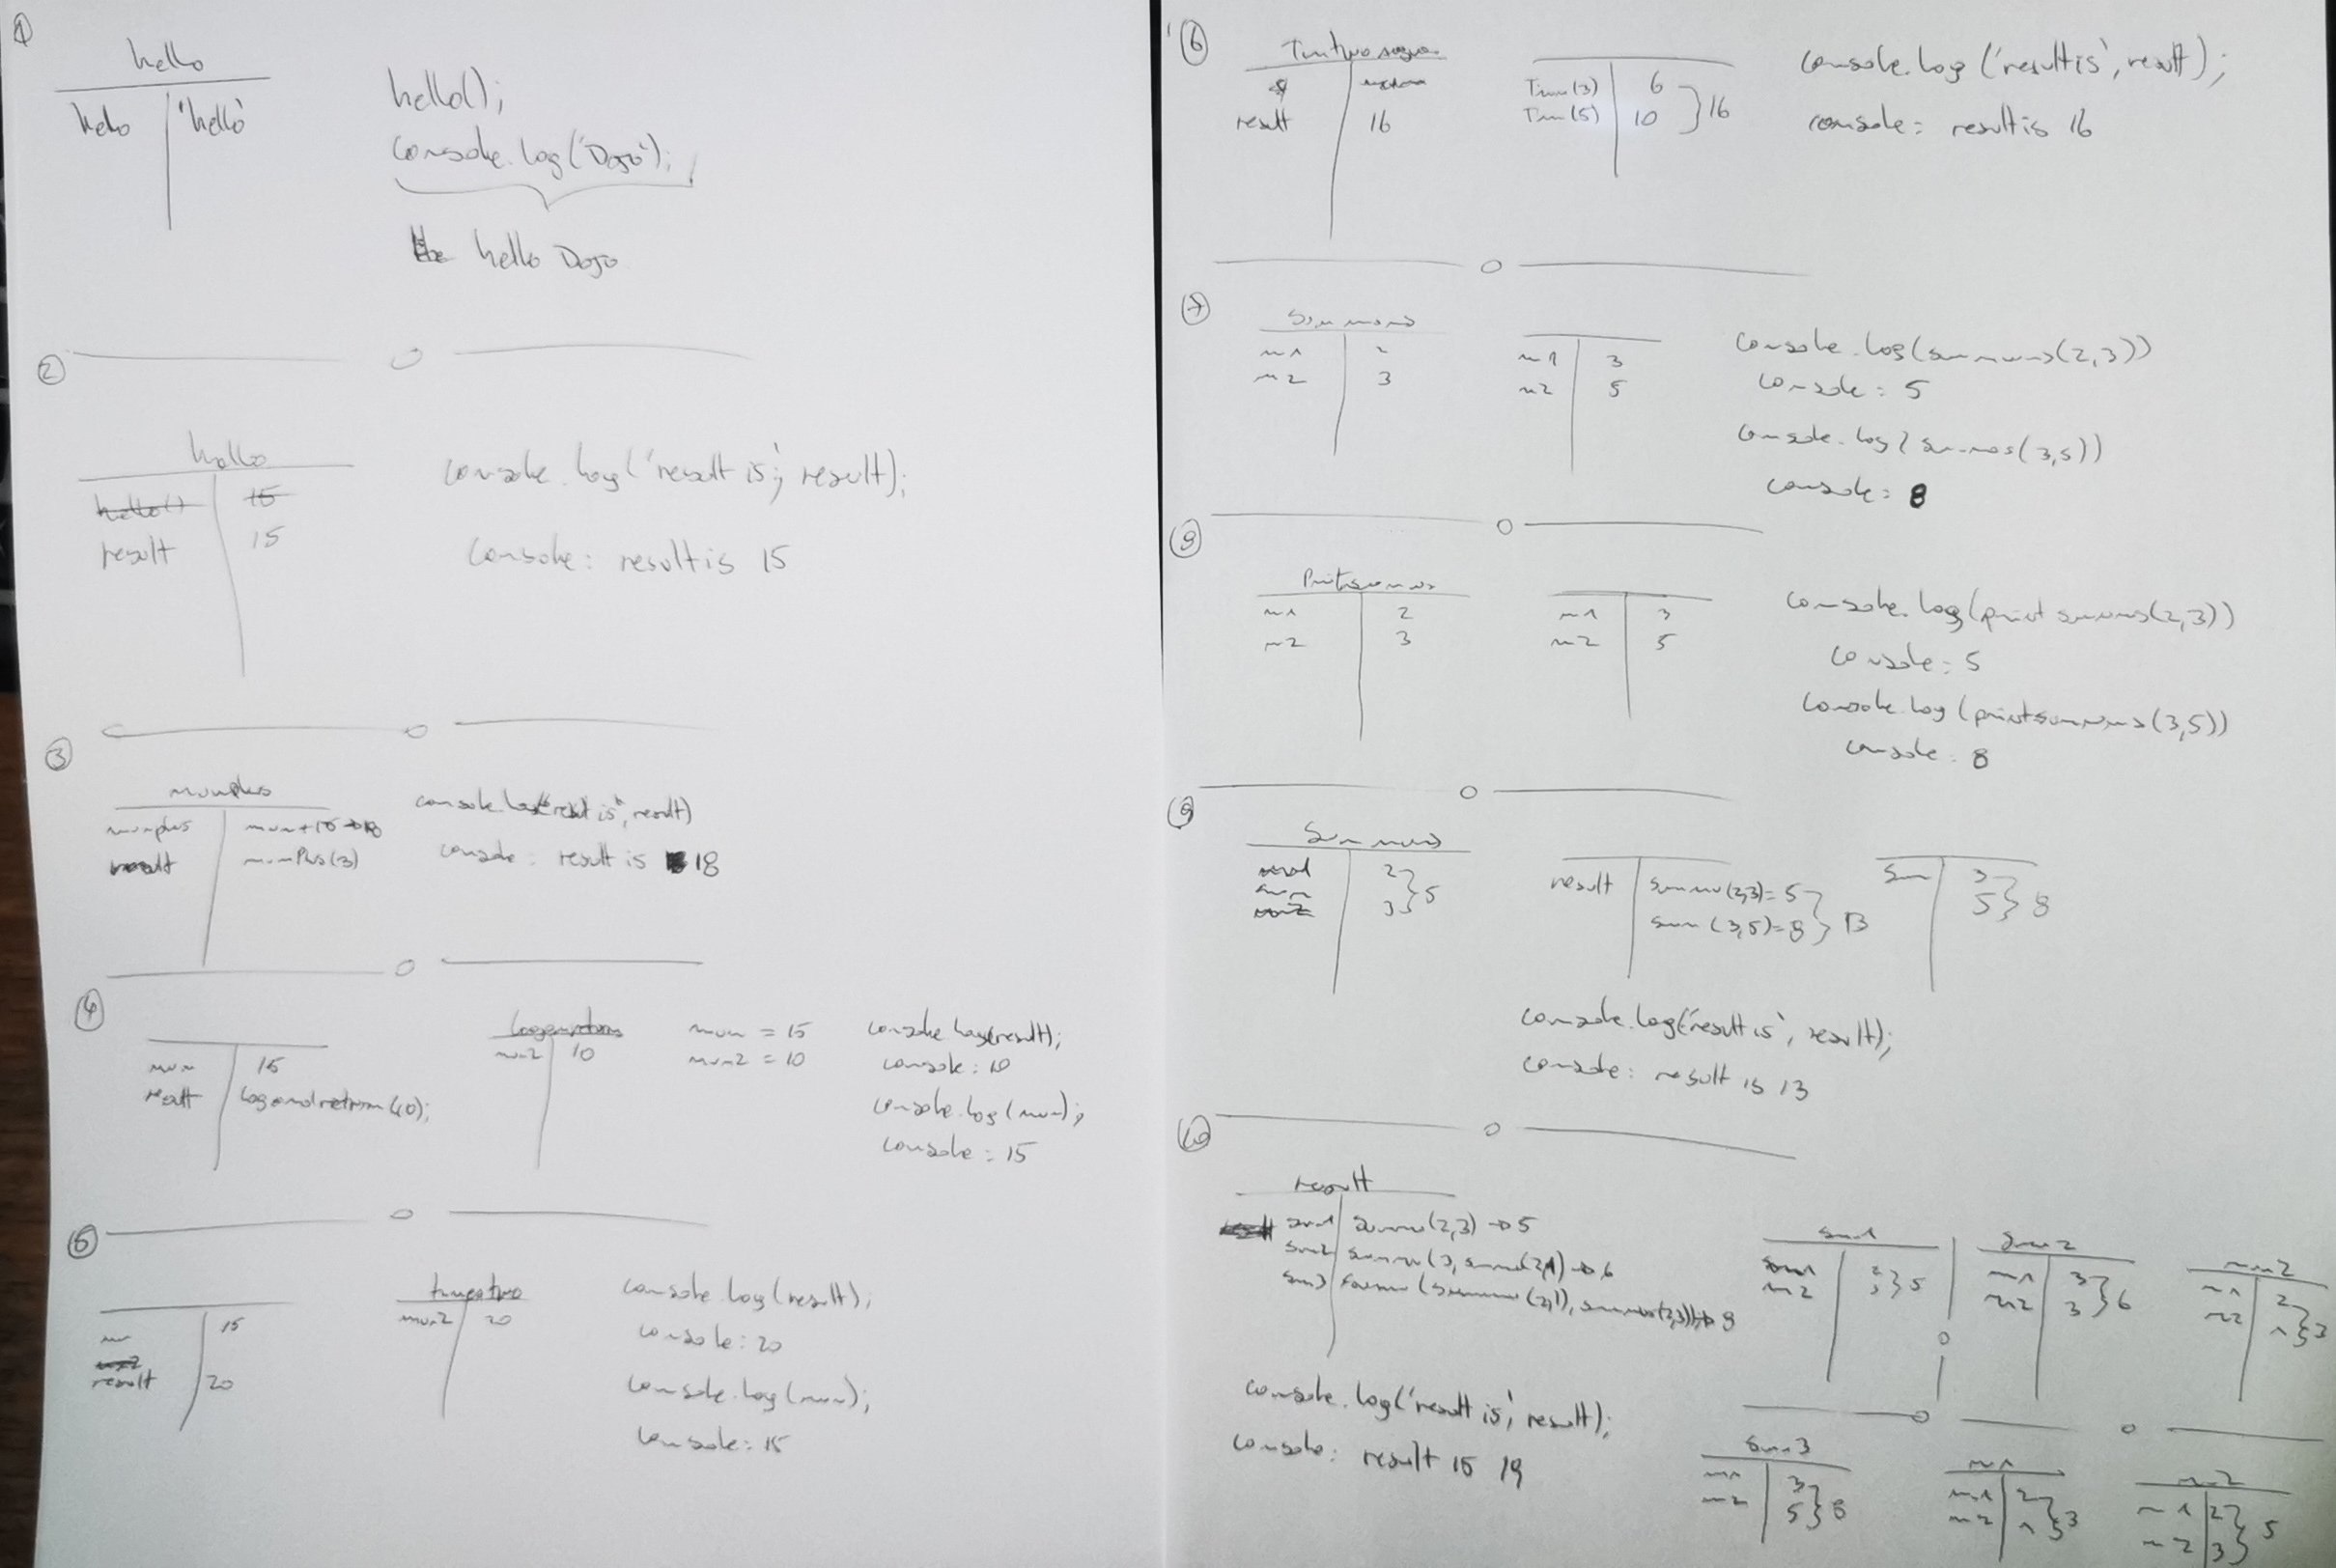 1
hello
hello 'hello'
hello();
console.log('Dojo');
hello Dojo
2
hello
hello() 15
result 15
console.log('result is', result);
console: result is 15
3
numplus
numplus num+15→18
result numPlus(3)
console.log("result is", result)
console: result is 18
4
num 15
result logandreturn(10);
logandreturn
num2 10
num = 15
num2 = 10
console.log(result);
console: 10
console.log(num);
console: 15
5
num 15
num2
result 20
timestwo
num2 20
console.log(result);
console: 20
console.log(num);
console: 15
6
result 16
Tim(3) 6
Tim(5) 10 } 16
console.log('result is', result);
console: result is 16
7
Sumnums
n1 2
n2 3
n1 3
n2 5
console.log(sumnums(2,3))
console: 5
console.log(sumnums(3,5))
console: 8
8
Printsumnums
n1 2
n2 3
n1 3
n2 5
console.log(printsumnums(2,3))
console: 5
console.log(printsumnums(3,5))
console: 8
9
Sumnums
sum 2
3 } 5
result sumnu(2,3)=5
sum(3,5)=8 } 13
Sum 3
5 } 8
console.log('result is', result);
console: result is 13
10
result
sum1 sumnu(2,3) → 5
sum2 sumnu(3, sumnu(2,1) → 6
sum3 sumnu(sumnu(2,1), sumnu(2,3)) → 8
sum1
n2 3 } 5
sum2
n1 3
n2 3 } 6
num2
n1 2
n2 1 } 3
console.log('result is', result);
console: result is 19
sum3
n1 3
n2 5 } 8
n1
n1 2
n2 1 } 3
n2
n1 2
n2 3 } 5